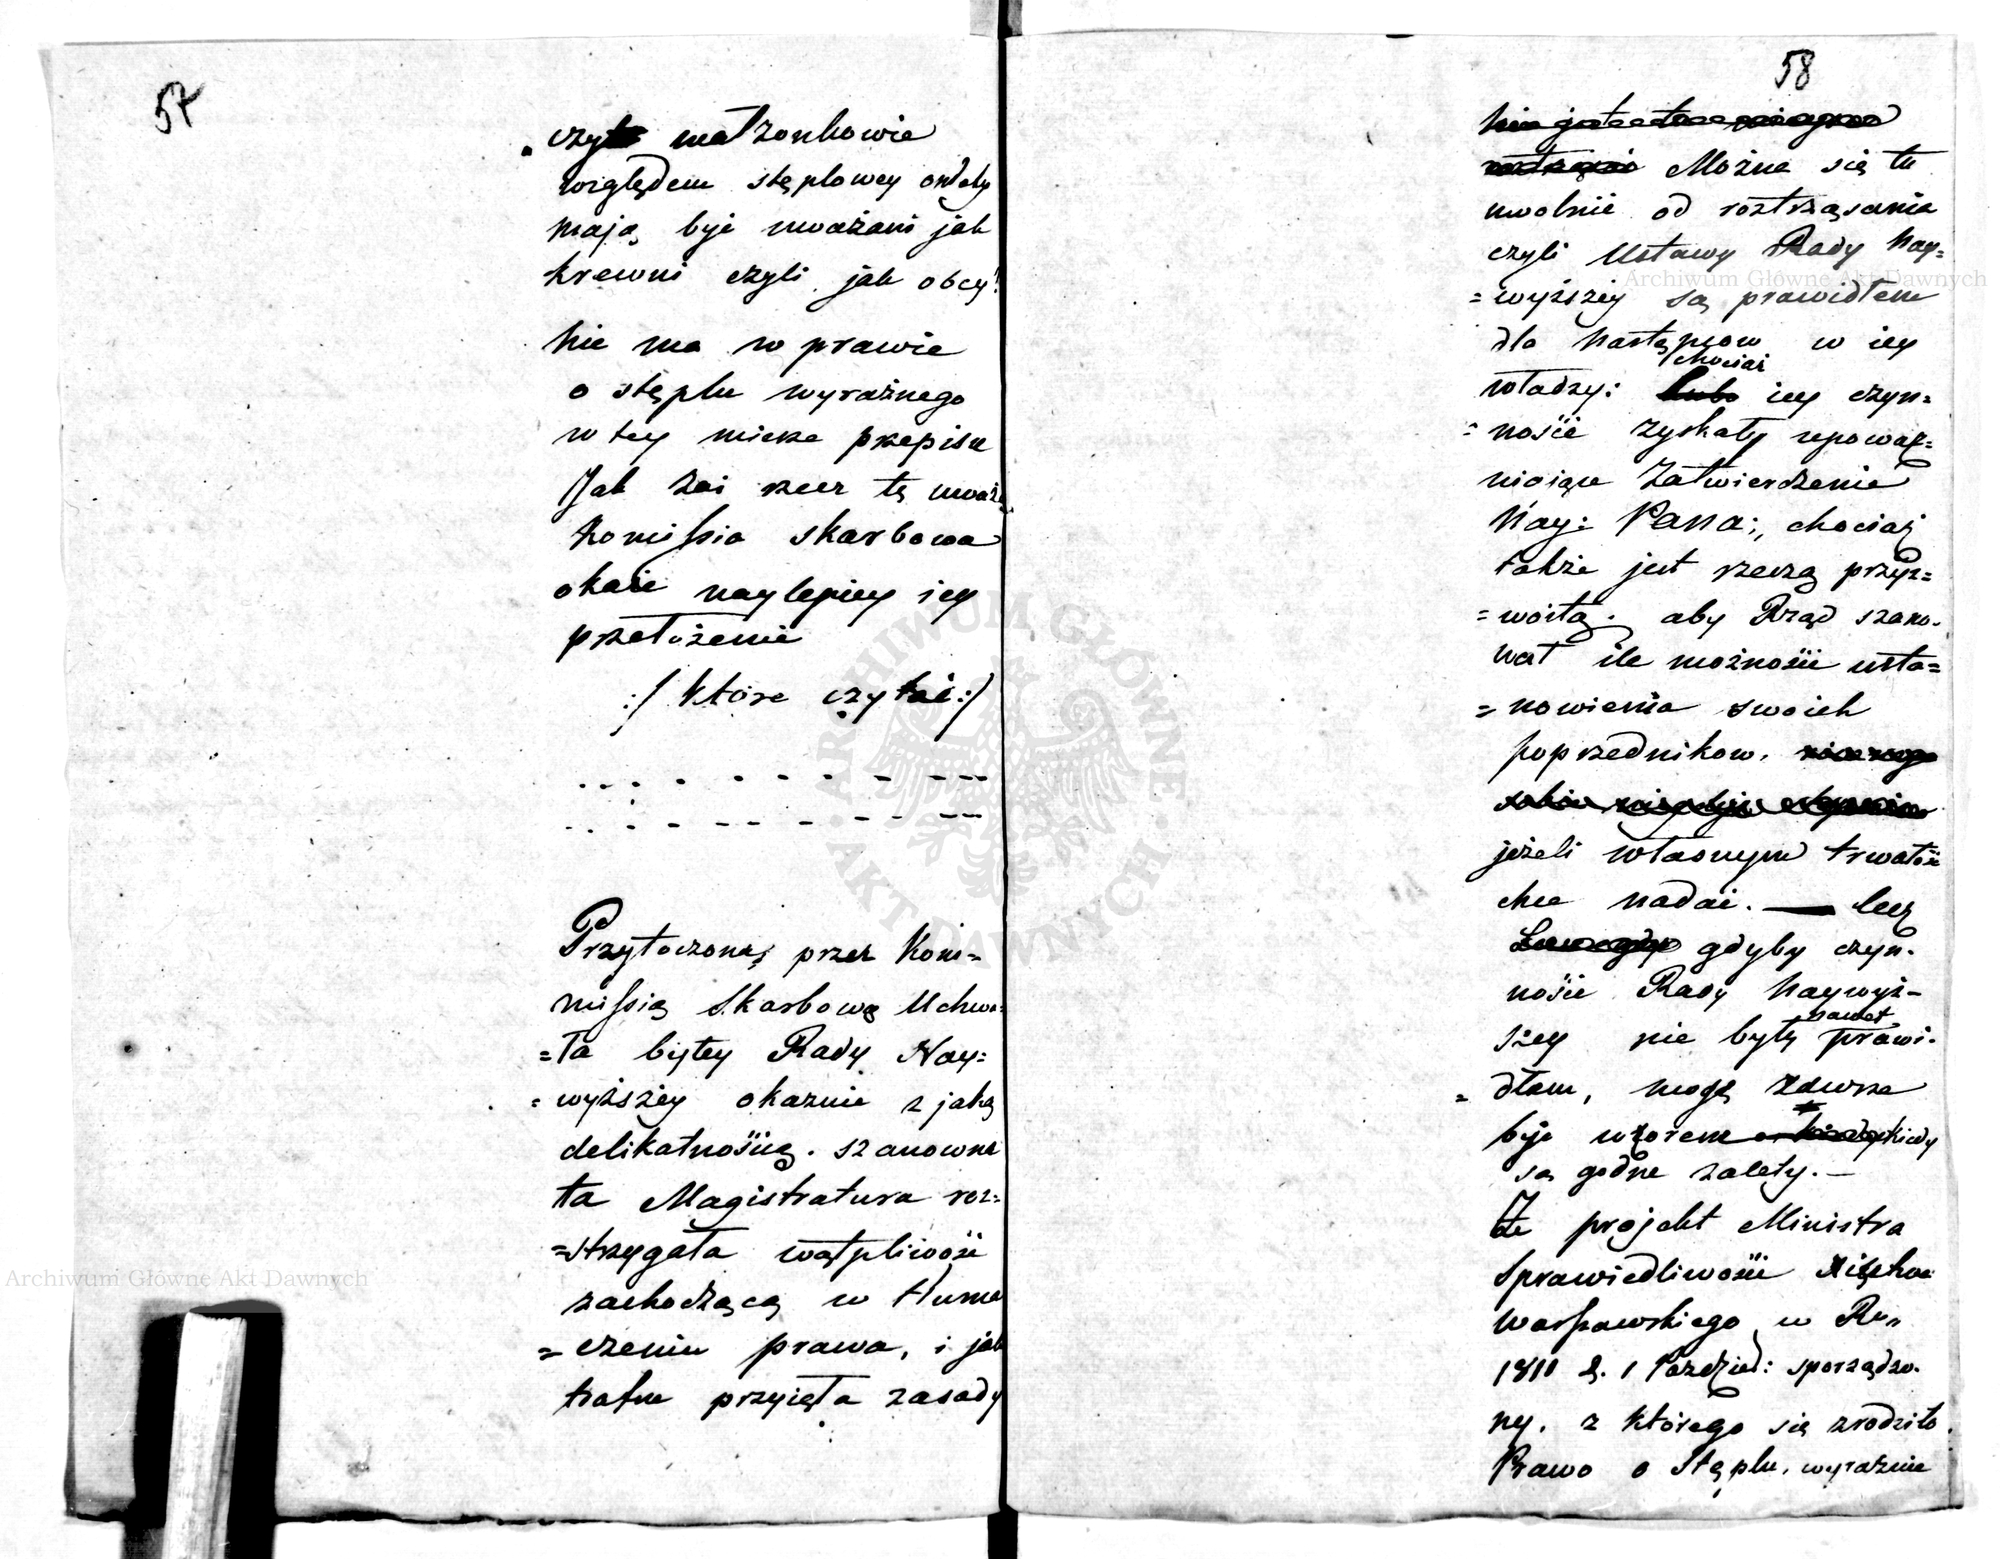 57
czyli małżonkowie
względem stęplowey opłaty
mają być uważani jak
krewni czyli jak obcy!
Nie ma w prawie
o stęplu wyraźnego
w tey mierze przepisu
Jak zaś rzecz tę uważa
Kommissia Skarbowa
okaże naylepiey iey
przełożenie
:/ które czytać :/
Przytoczona przez Kom=
missią Skarbową Uchwa=
=ła byłey Rady Nay=
=wyższey okazuie z jaką
delikatnością szanowna
ta Magistratura roz=
=strzygała wątpliwość
zachodzącą w tłuma
=czeniu prawa, i jak
trafne przyięła zasady
58
Można się tu
uwolnić od roztrząsania
czyli Ustawy Rady Nay=
=wyższey są prawidłem
dla Następcow w iey
władzy: chociaż iey czyn=
=ności zyskały upoważ=
niaiące Zatwierdzenie
Nay: Pana;, chociaż
także jest rzeczą przyz=
=woitą. aby Rząd szano-
wał ile możności usta=
=nowienia swoich
poprzednikow.
jeżeli własnym trwałość
chce nadać. — lecz
gdyby czyn-
ności Rady Naywyż-
szey nie były nawet prawi-
=dłem, mogą zawsze
być wzorem kiedy
są godne zalety. —
Ze projekt Ministra
Sprawiedliwości Xięstwa
Warszawskiego w Ru.
1811 d. 1 Paździer: sporządzo-
ny. z którego się zrodziło
Prawo o Stęplu, wyraźnie
Archiwum Główne Akt Dawnych
Archiwum Główne Akt Dawnych
ARCHIWUM GŁÓWNE · AKT DAWNYCH ·